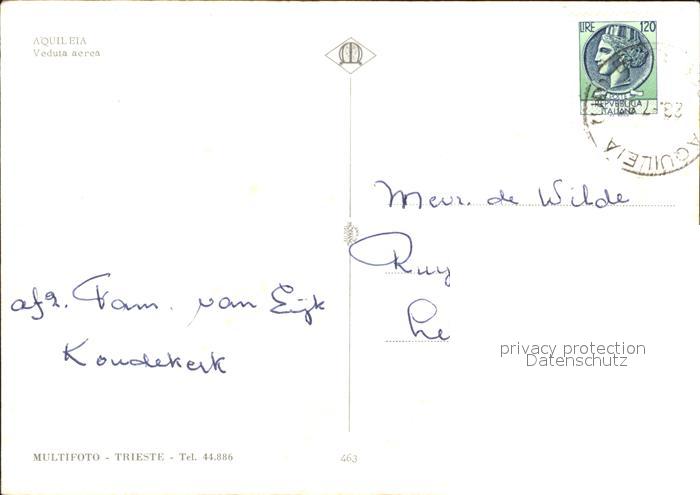 AQUILEIA
Veduta aerea
M
LIRE 120
POSTE
REPVBBLICA
ITALIANA
23. 7
AQUILEIA
Mevr. de Wilde
afz. Fam. van Eijk
Koudekerk
privacy protection
Datenschutz
MULTIFOTO - TRIESTE - Tel. 44.886
463